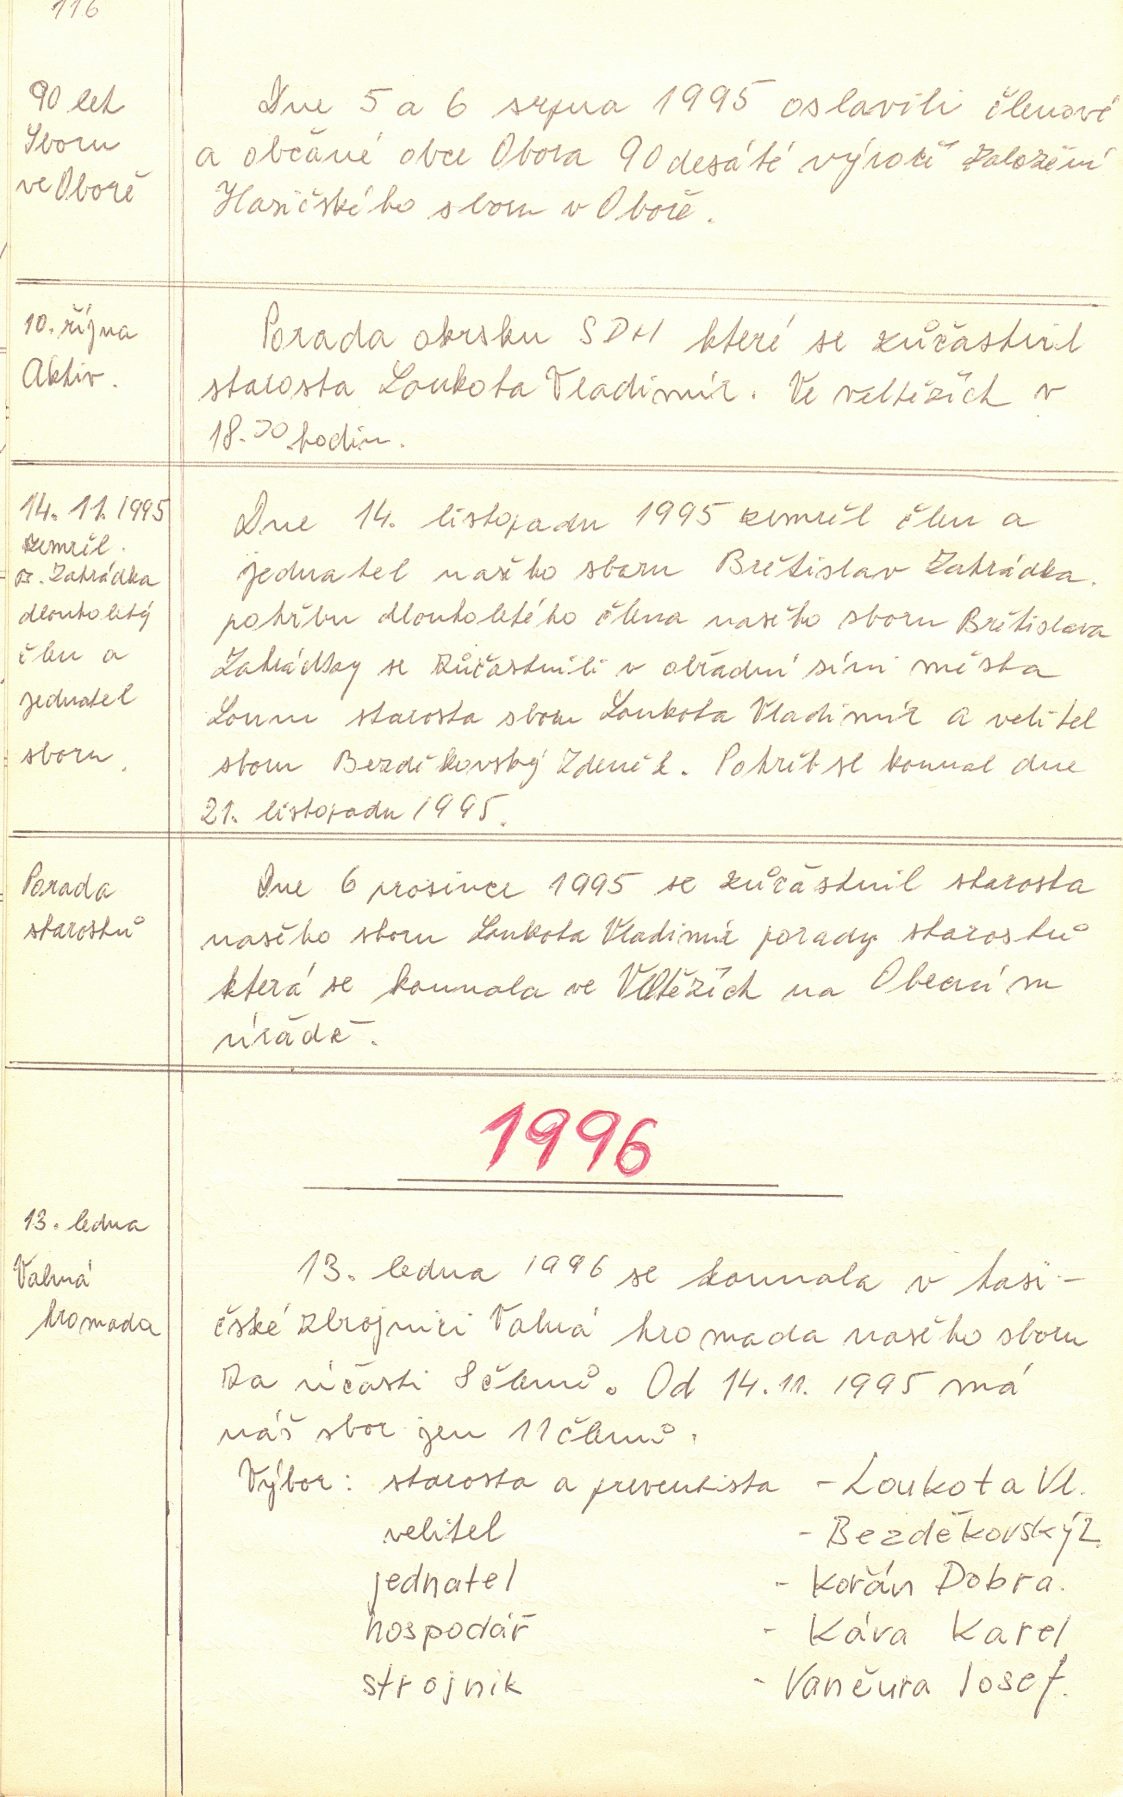 116
90 let
Sboru
ve Oboře
Dne 5 a 6 srpna 1995 oslavili členové
a občané obce Obora 90 desáté výročí založení
Hasičského sboru v Oboře.
10. října
Aktiv.
Porada okrsku SDH které se zůčastnil
starosta Loukota Vladimír. Ve veltěžích v
18.30 hodin.
14. 11. 1995
zemřel
Zahrádka
dlouholetý
člen a
jednatel
sboru.
Dne 14. listopadu 1995 zemřel člen a
jednatel našeho sboru Břetislav Zahrádka.
pohřbu dlouholetého člena našeho sboru Břetislava
Zahrádky se zůčastnili v obřadní síni města
Louny starosta sboru Loukota Vladimír a velitel
sboru Bezděkovský Zdeněk. Pohřeb se konnal dne
21. listopadu 1995.
Porada
starostů
Dne 6 prosince 1995 se zůčástnil starosta
našeho sboru Loukota Vladimír porady starostů
která se konnala ve Veltěžích na Obecním
úřadě.
1996
13. ledna
Valná
hromada
13. ledna 1996 se konnala v hasi-
čské zbrojnici Valná hromada našeho sboru
za účasti 8 členů. Od 14. 11. 1995 má
náš sbor jen 11 členů.
Výbor: starosta a preventista - Loukota Vl.
velitel - Bezděkovský Z.
jednatel - Kořán Dobra.
hospodář - Káva Karel
strojník - Vančura Josef.